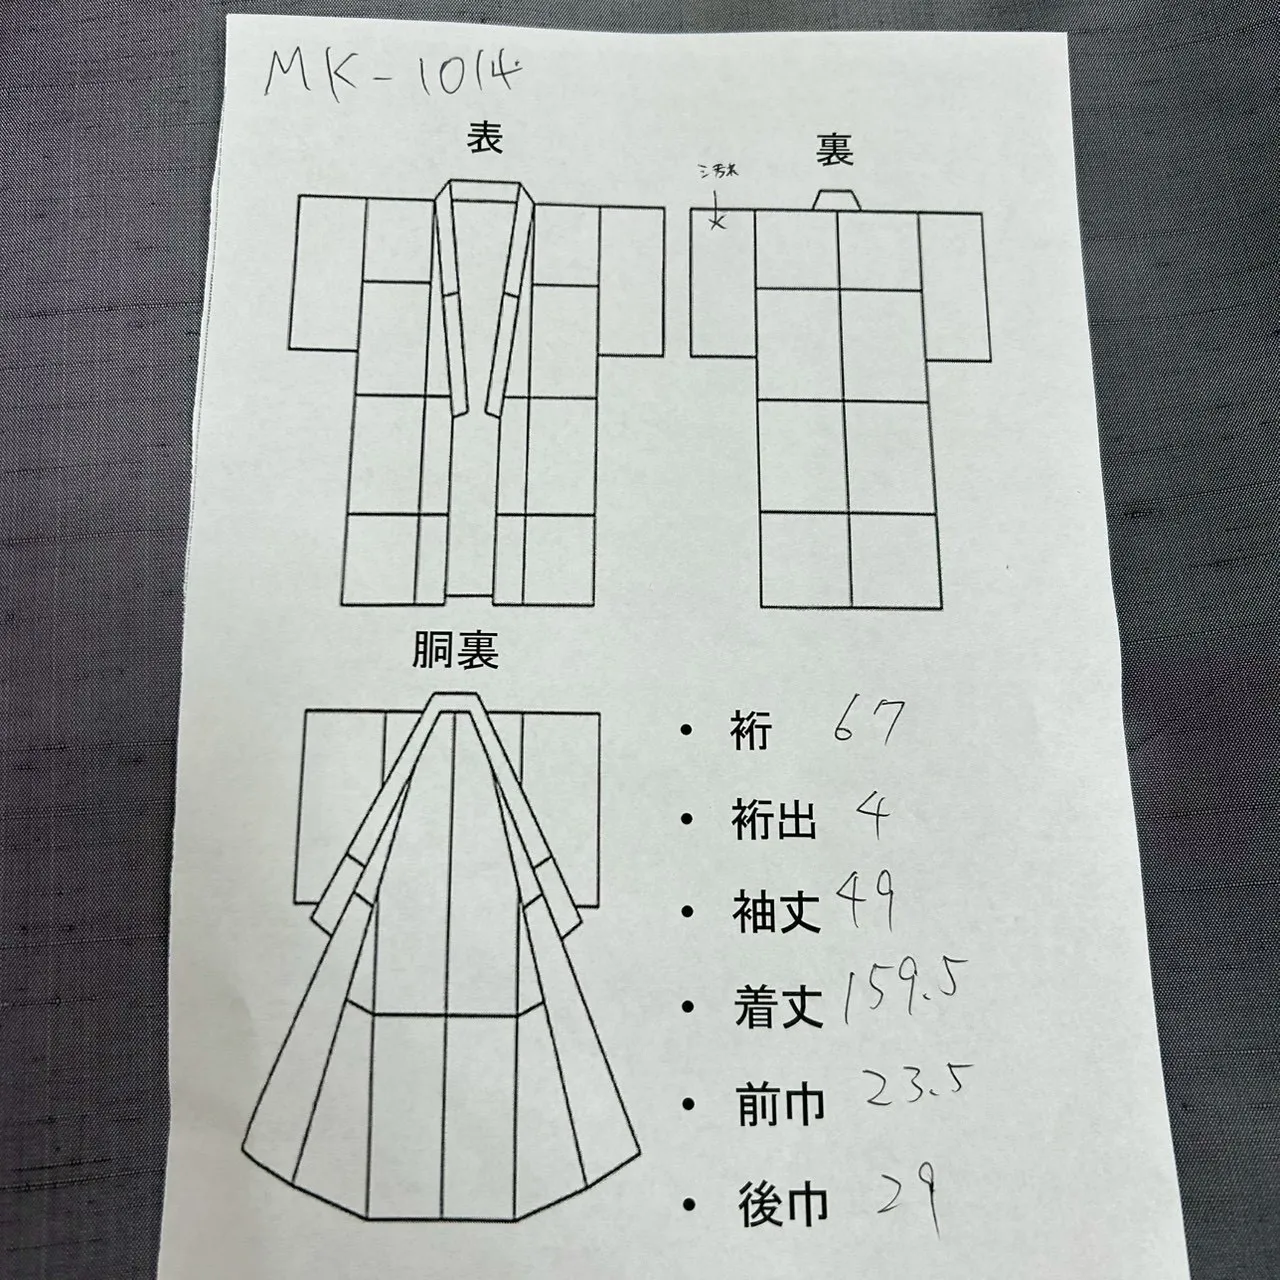 MK-1014
表
裏
ミ汚れ
胴裏
・裄 67
・裄出 4
・袖丈 49
・着丈 159.5
・前巾 23.5
・後巾 29